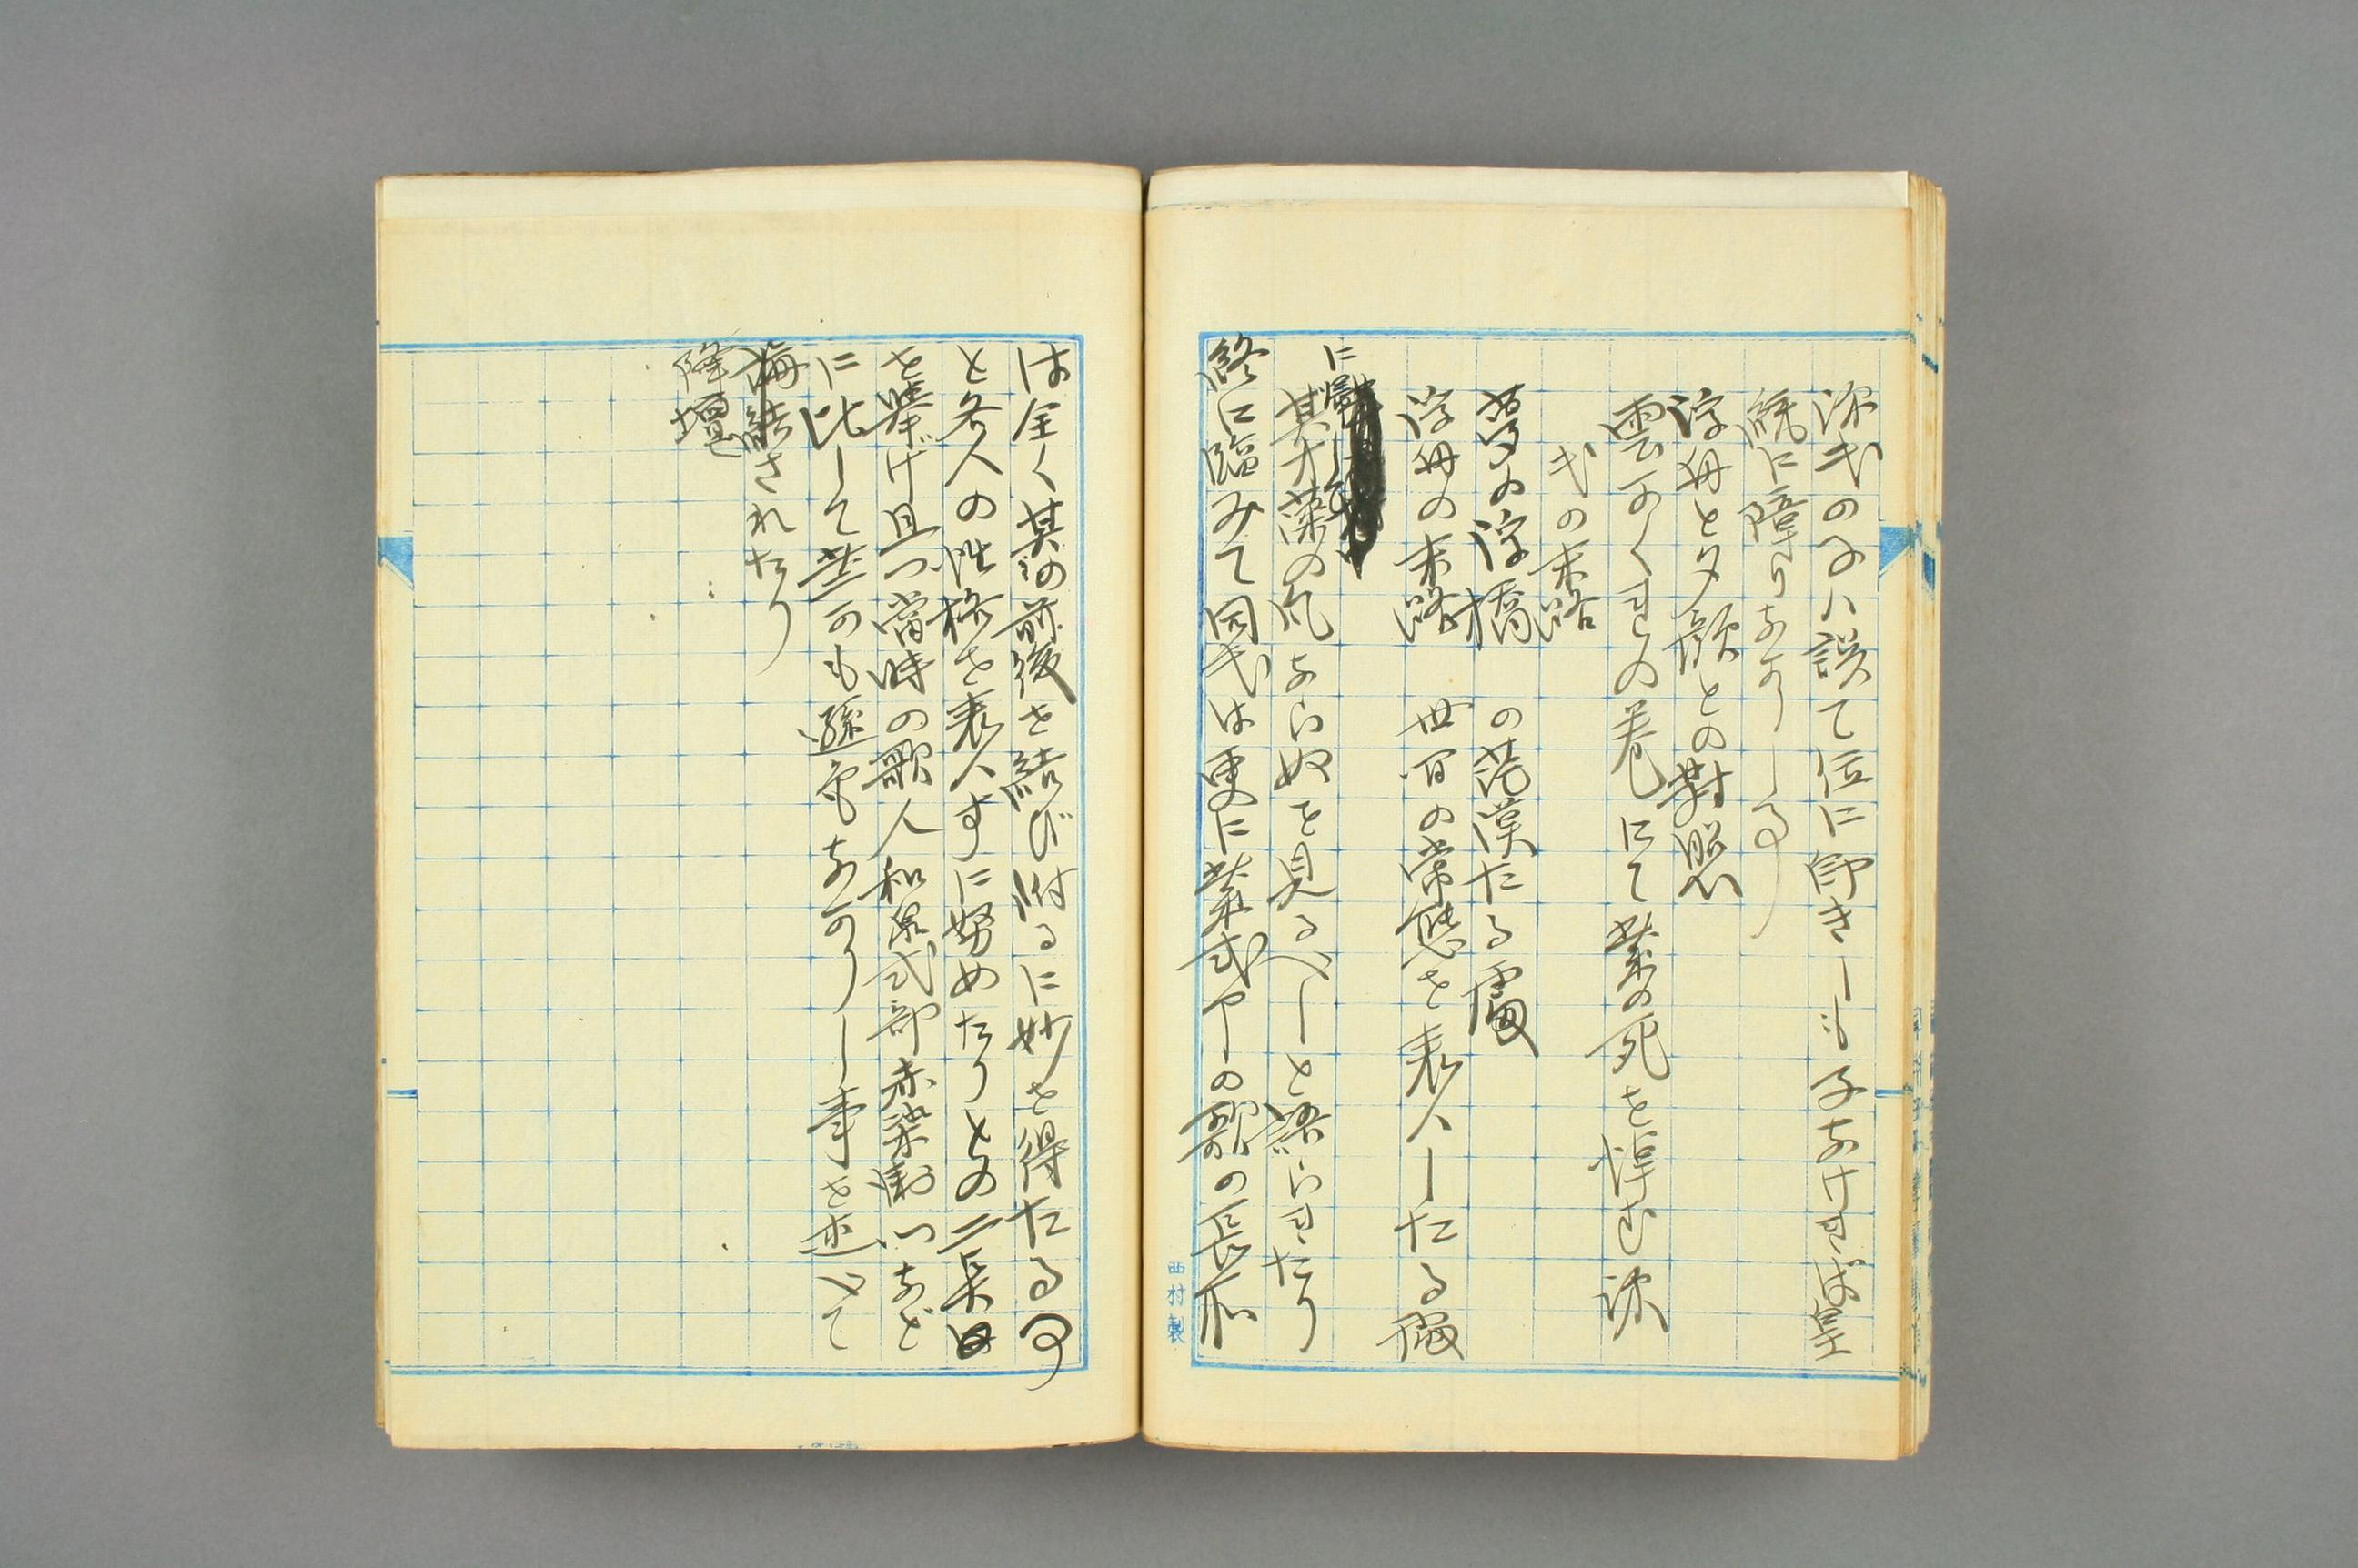 源氏の子ハ誤て位に即きしも子なければ皇
統に障りなかりし事
浮舟と夕顔との対照
雲がくれの巻にて紫の死を悼む 源
氏の末路
夢の浮橋 の茫漠たる處
浮舟の末路 世間の常態を表ハしたる處
に歸して
其才藻の凡ならぬを見るべしと論られたり
終に臨みて同氏は更に紫式ア一の歌の長所
は全く其の前後を結び附るに妙を得たる事
と各人の性格を表ハすに努めたりとの二長
を挙げ且つ當時の歌人和泉式部赤染衛門など
に比して葢かも遜色なかりし事を述べて
海結されたり
降壇
西村製